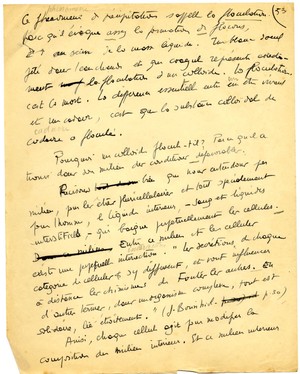 phénomène
Ce phénomène de précipitation s'appelle la floculation (53
parce qu'il évoque assez la formation de flocons,
au sein de la masse liquide. Un blanc d'œuf
jeté dans l'eau chaude et qui coagule représente exacte-
ment la floculation d'un colloïde. La floculation
c'est la mort. La différence essentielle entre un être vivant
et un cadavre, c'est que la substance colloïdale du
cadavre a floculé.
Pourquoi un colloïde flocule-t-il? Parce qu'il a
trouvé dans son milieu des conditions défavorables.
Précisons bien que nous entendons par
milieu, pour les êtres pluricellulaires et tout spécialement
pour l'homme, le liquide intérieur - sang et liquides
interstitiels - qui baigne perpétuellement les cellules.
Entre ce milieu et les cellules
existe une perpétuelle interaction. "Les sécrétions de chaque
catégorie de cellules y diffèrent, et vont influencer
à distance les chimismes de toutes les autres. En
d'autres termes, dans un organisme complexe, tout est
solidaire, lié étroitement." (J. p 50)
Ainsi, chaque cellule agit pour modifier la
composition du milieu intérieur. Et ce milieu intérieur